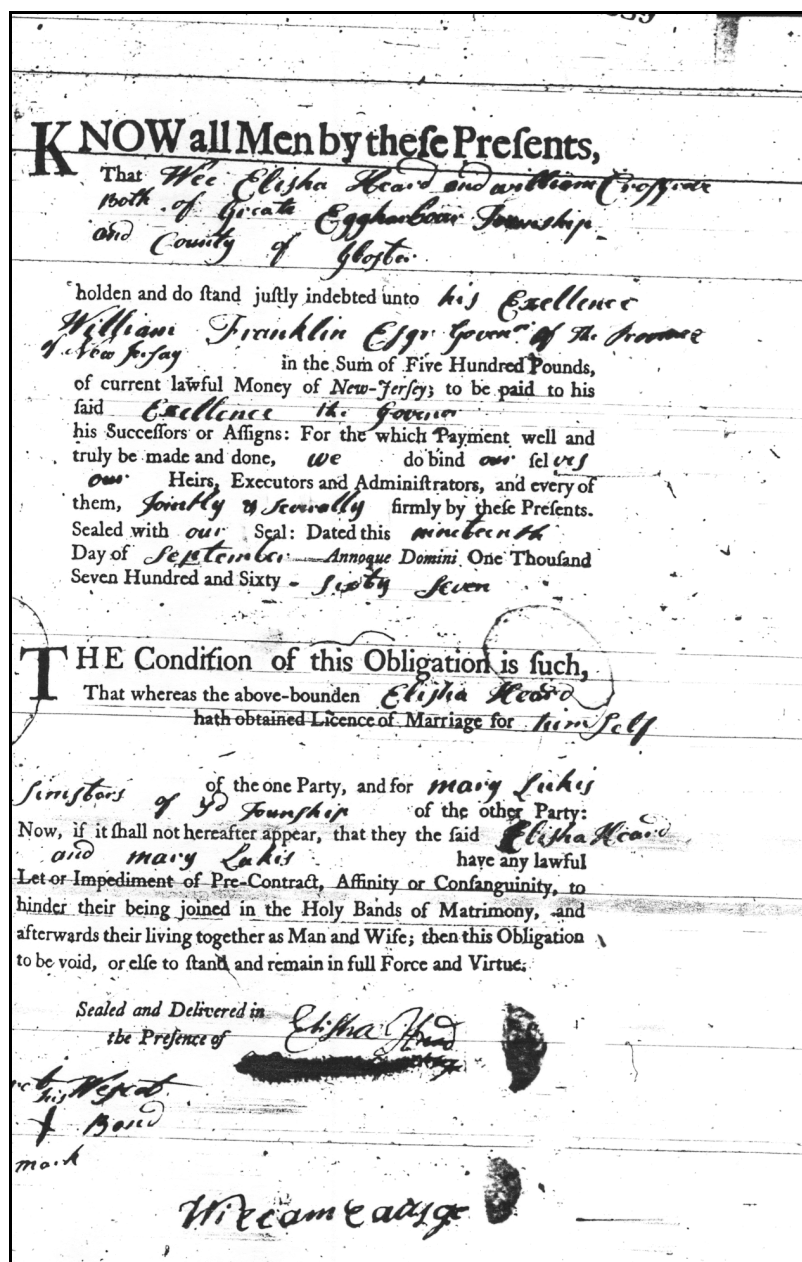 KNOW all Men by theſe Preſents,
That Wee Elisha Heard and william
Both of Greate Eggharbour Township
and County of Gloster
holden and do ſtand juſtly indebted unto his Exellence
William Franklin Esqr Govenr of The Province
of New Jersay in the Sum of Five Hundred Pounds,
of current lawful Money of New-Jerſey; to be paid to his
ſaid Exellence the Govenor
his Succeſſors or Aſſigns: For the which Payment well and
truly be made and done, we do bind our ſelves
our Heirs, Executors and Adminiſtrators, and every of
them, Jointly & Severally firmly by theſe Preſents.
Sealed with our Seal: Dated this nineteenth
Day of September Annoque Domini One Thouſand
Seven Hundred and Sixty - Sixty Seven
THE Condition of this Obligation is ſuch,
That whereas the above-bounden Elisha Heard
hath obtained Licence of Marriage for himself
of the one Party, and for mary Lukis
of yd Township of the other Party:
Now, if it ſhall not hereafter appear, that they the ſaid Elisha Heard
and mary Lukis have any lawful
Let or Impediment of Pre-Contract, Affinity or Conſanguinity, to
hinder their being joined in the Holy Bands of Matrimony, and
afterwards their living together as Man and Wife; then this Obligation
to be void, or elſe to ſtand and remain in full Force and Virtue.
Sealed and Delivered in
the Preſence of Elisha Heard
his Wescot
Bond
mark